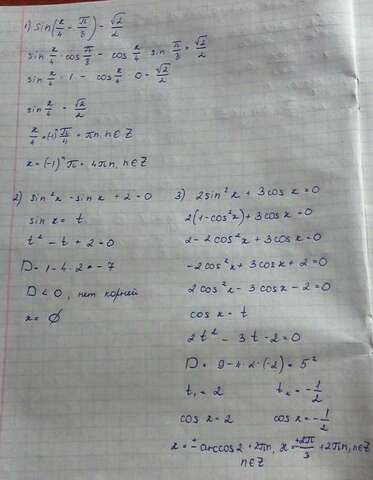 1) sin(x/4 - π/3) = √2/2
sin x/4 · cos π/3 - cos x/4 · sin π/3 = √2/2
sin x/4 · 1 - cos x/4 · 0 = √2/2
sin x/4 = √2/2
x/4 = (-1)ⁿ π/4 + πn, n∈Z
x = (-1)ⁿ π + 4πn, n∈Z
2) sin²x - sin x + 2 = 0
sin x = t
t² - t + 2 = 0
D = 1 - 4·2 = -7
D < 0, нет корней
x = ∅
3) 2sin²x + 3cos x = 0
2(1-cos²x) + 3cos x = 0
2 - 2cos²x + 3cos x = 0
-2cos²x + 3cos x + 2 = 0
2cos²x - 3cos x - 2 = 0
cos x = t
2t² - 3t - 2 = 0
D = 9 - 4·2·(-2) = 5²
t₁ = 2 t₂ = -1/2
cos x = 2 cos x = -1/2
x = ± arccos 2 + 2πn, x = ±2π/3 + 2πn, n∈Z
n∈Z